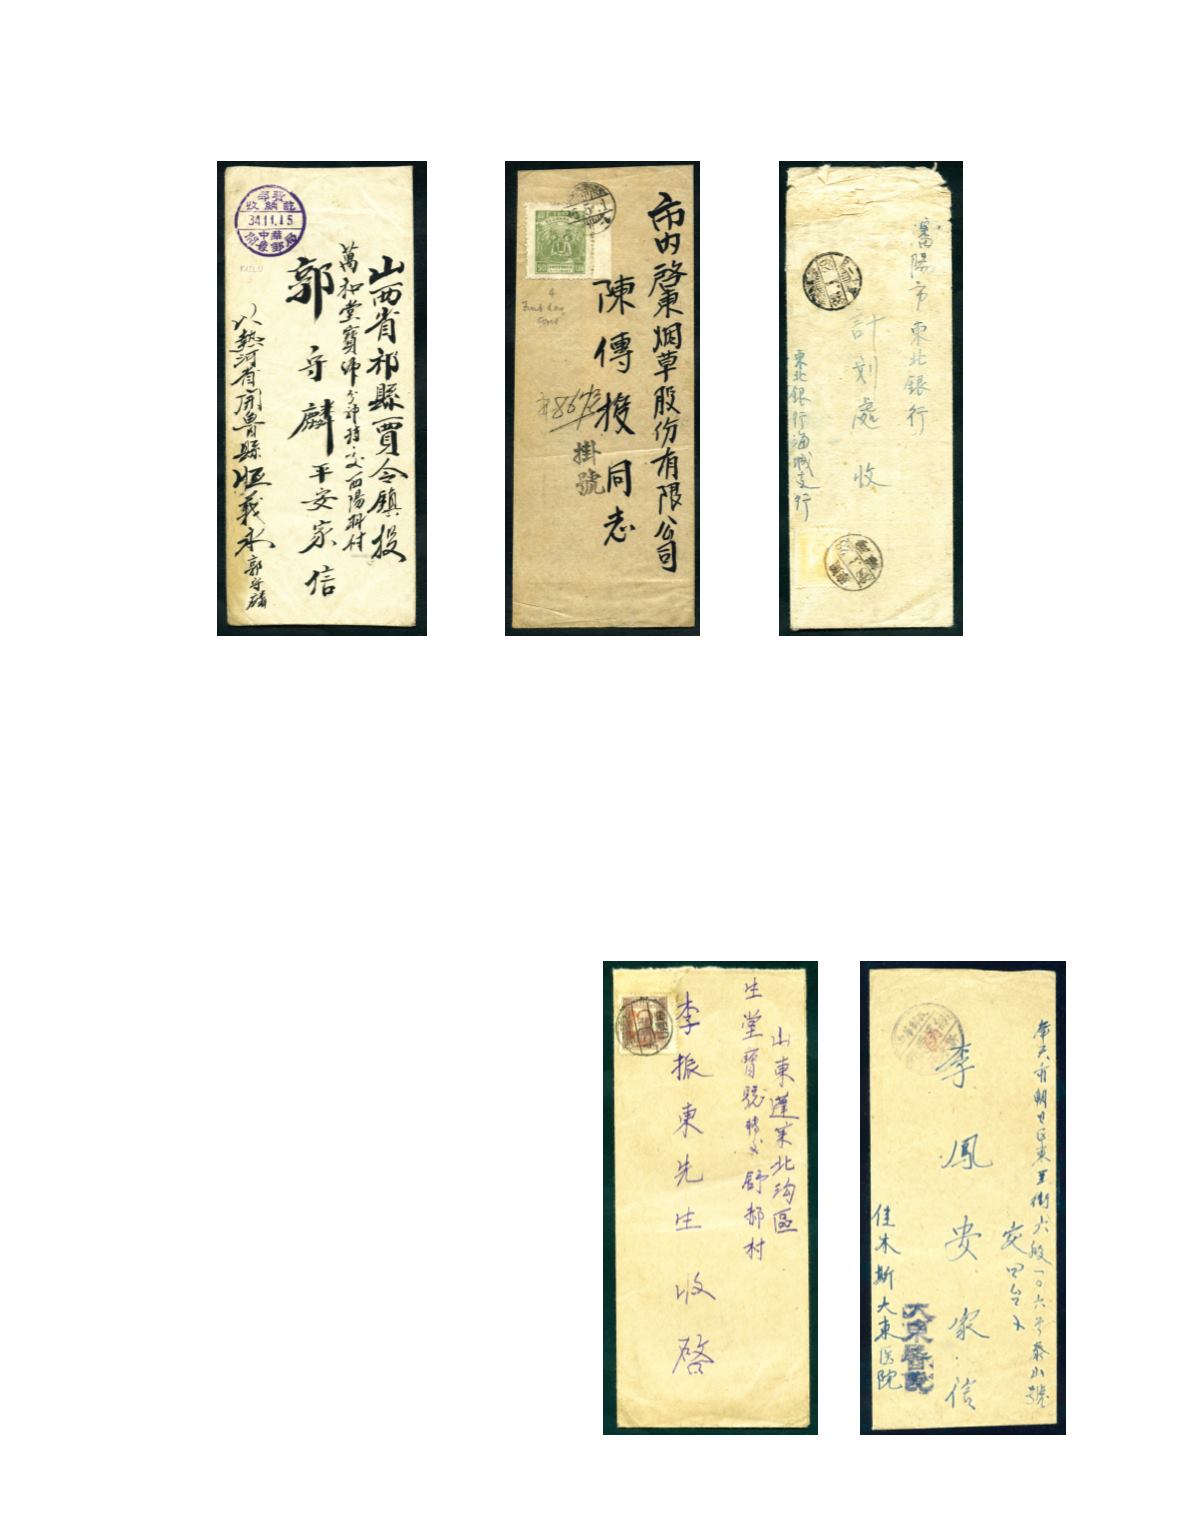 郵資
收納訖
34.11.15
中華郵局
開魯
山西省祁縣賈令鎮投
萬和堂寶
交西陽羽村
郭守麟平安家信
熱河省開魯縣恒義永郭守麟
市內啓東烟草股份有限公司
陳傳授同志
掛號
瀋陽市東北銀行
計划處收
東北銀行海城支行
山東蓬萊北沟區
生堂寶號轉交舒郝村
李振東先生收啓
奉天市朝日區東里街六段一〇六号泰山號
交
李鳳安家信
佳木斯大東医院
大東醫院